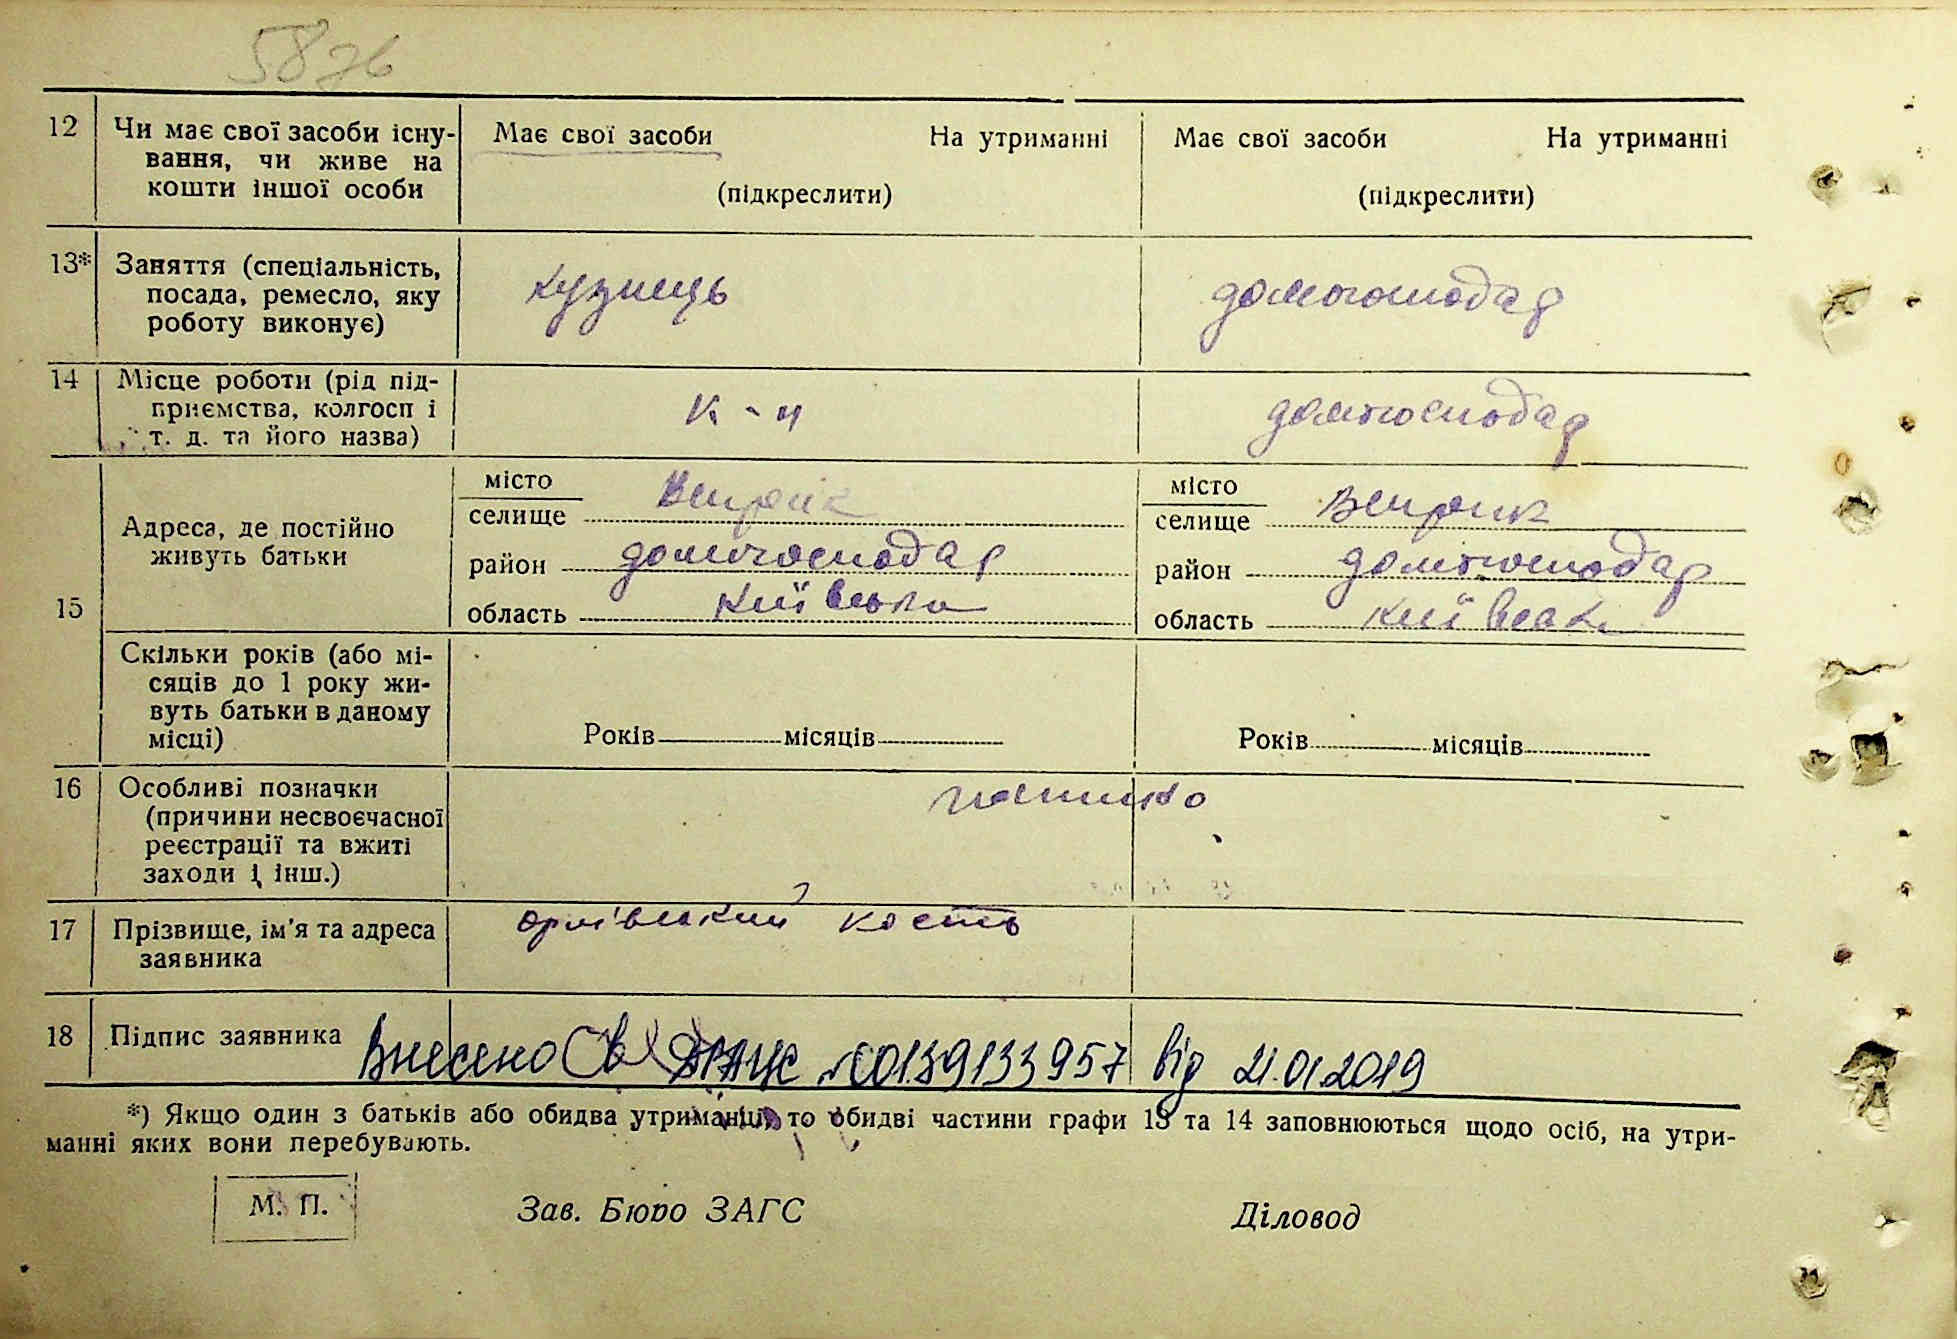 58 зв
12 Чи має свої засоби існу- Має свої засоби На утриманні Має свої засоби На утриманні
вання, чи живе на
кошти іншої особи (підкреслити) (підкреслити)
13* Заняття (спеціальність, кузнець домогосподар
посада, ремесло, яку
роботу виконує)
14 Місце роботи (рід під- к-п домогосподар
приємства, колгосп і
т. д. та його назва)
15 Адреса, де постійно
живуть батьки
місто Веприк місто Веприк
селище селище
район домогосподар район домогосподар
область Київська область Київська
Скільки років (або мі-
сяців до 1 року жи-
вуть батьки в даному
місці) Років місяців Років місяців
16 Особливі позначки
(причини несвоєчасної
реєстрації та вжиті
заходи і інш.)
17 Прізвище, ім'я та адреса Кость
заявника
18 Підпис заявника Внесено в ДРАЦС №00139133957 від 21.01.2019
*) Якщо один з батьків або обидва утриманці, то обидві частини графи 13 та 14 заповнюються щодо осіб, на утри-
манні яких вони перебувають.
М. П. Зав. Бюро ЗАГС Діловод